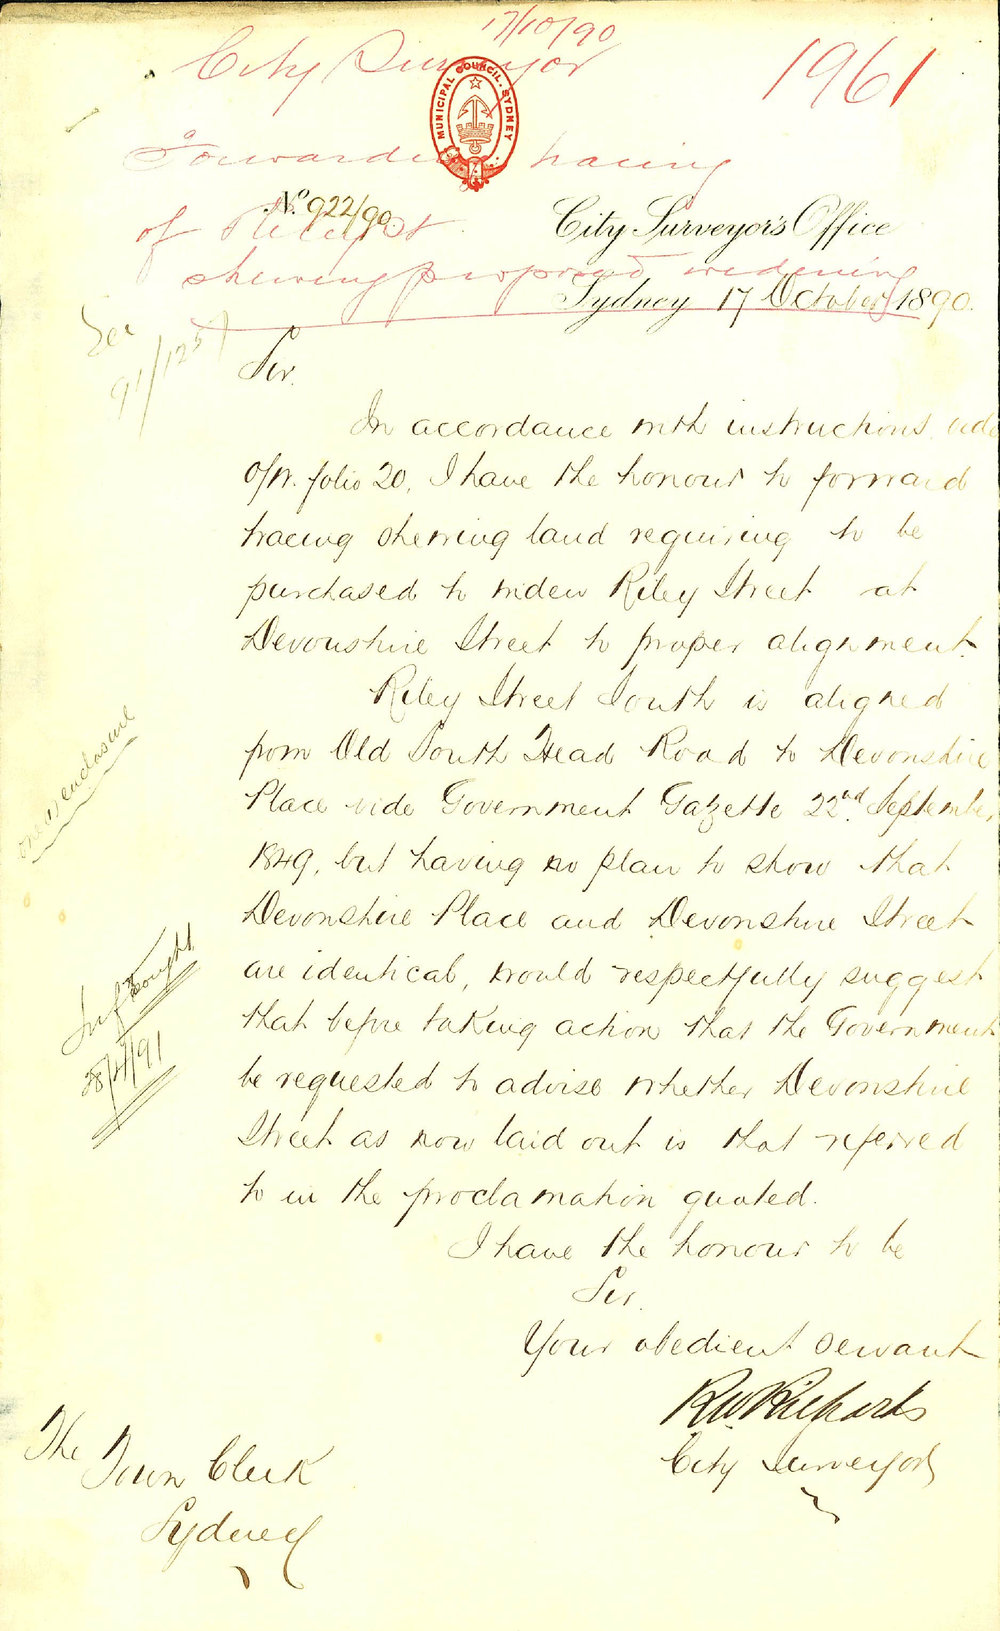 17/10/90
City Surveyor
1961
MUNICIPAL COUNCIL. SYDNEY
Forwarding tracing
of Riley St
shewing proposed widening
No. 922/90
City Surveyor's Office
Sydney 17 October 1890.
See
91/125
Sir.
In accordance with instructions vide
O/W. folio 20, I have the honour to forward
tracing shewing land requiring to be
purchased to widen Riley Street at
Devonshire Street to proper alignment.
Riley Street South is aligned
from Old South Head Road to Devonshire
Place vide Government Gazette 22nd September
1849, but having no plan to show that
Devonshire Place and Devonshire Street
are identical, would respectfully suggest
that before taking action that the Government
be requested to advise whether Devonshire
Street as now laid out is that referred
to in the proclamation quoted.
I have the honour to be
Sir.
Your obedient servant
RW Richards
City Surveyor
The
Town Clerk
Sydney
one (1) enclosure
28/4/91